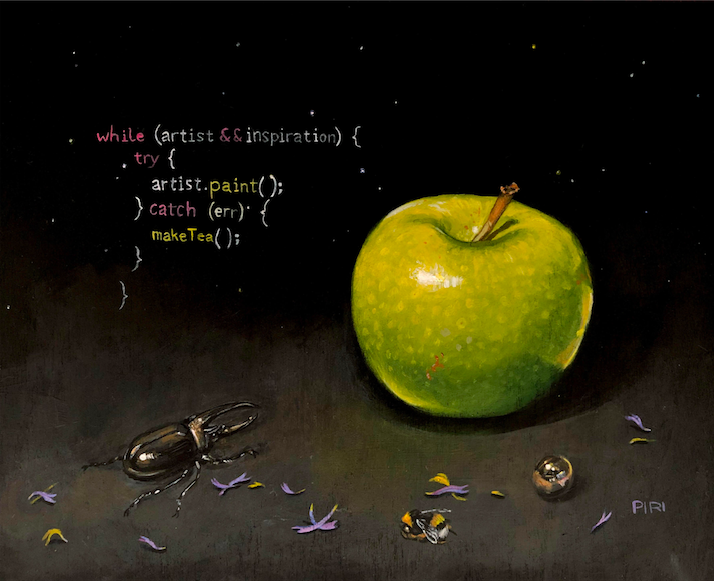 while (artist && inspiration) {
try {
artist.paint();
} catch (err) {
makeTea();
}
}
PIRI